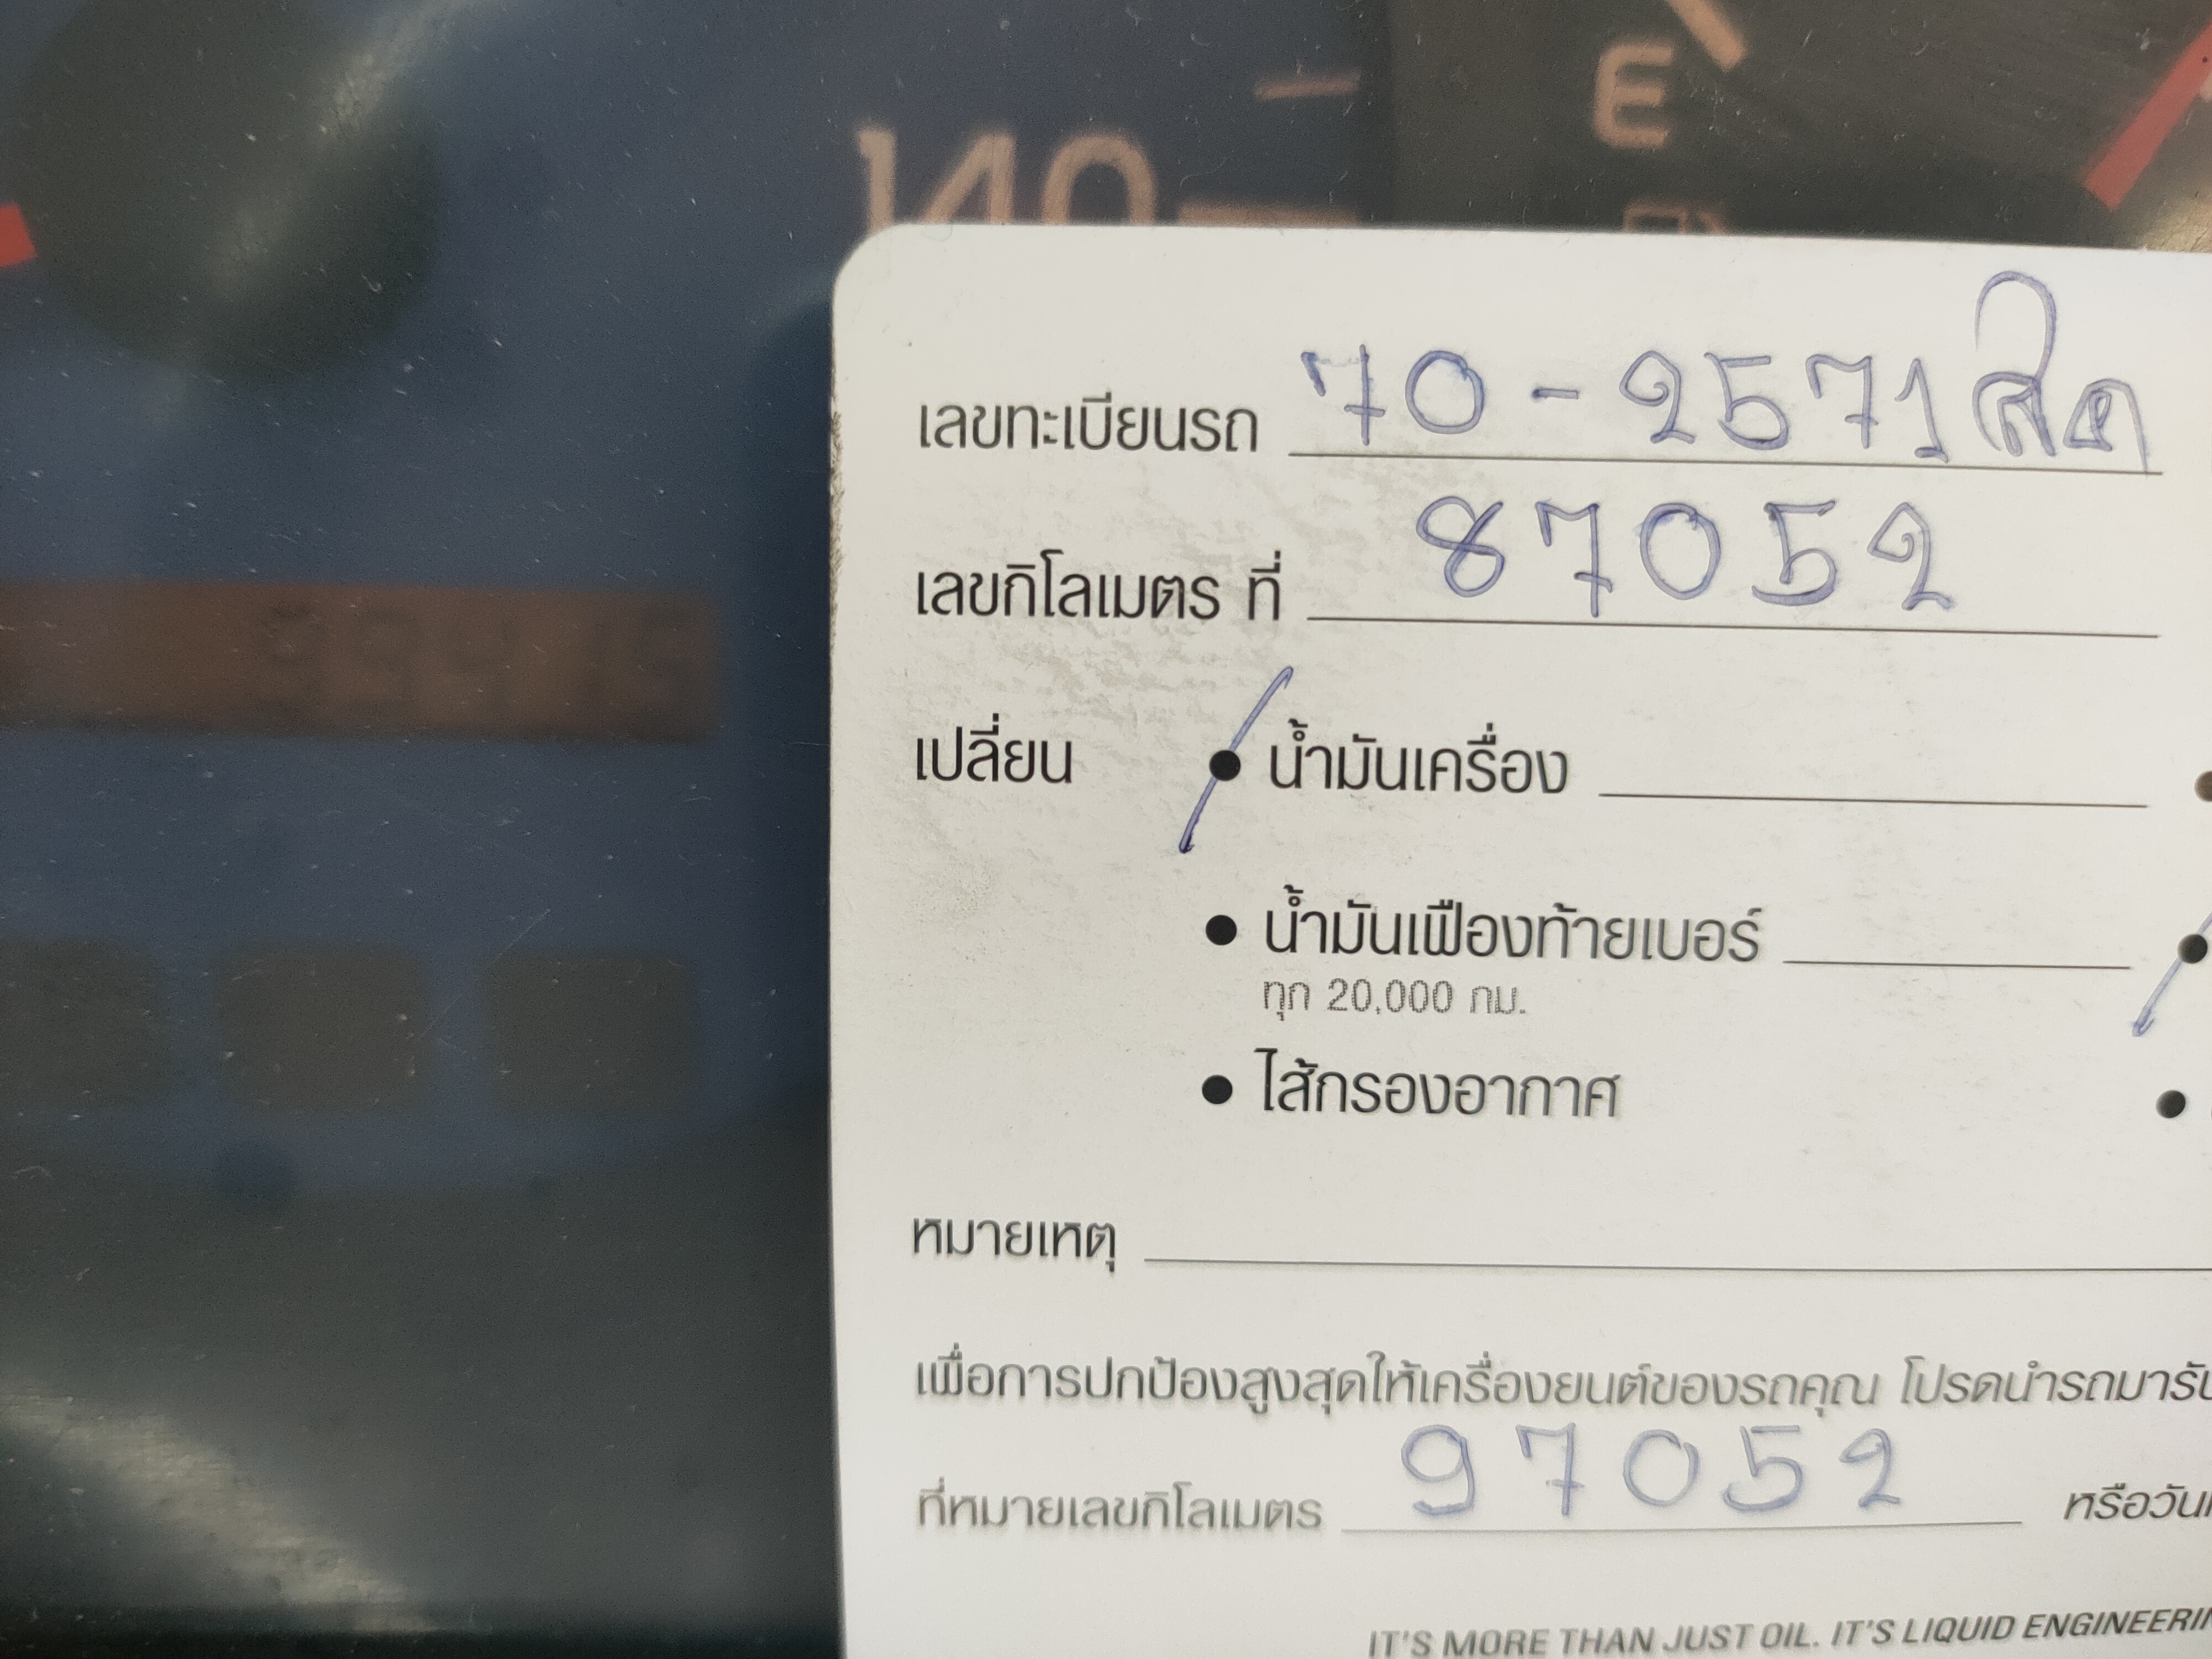 140
E
เลขทะเบียนรถ 70-2571 สด
เลขกิโลเมตร ที่ 87052
เปลี่ยน • น้ำมันเครื่อง
• น้ำมันเฟืองท้ายเบอร์
ทุก 20,000 กม.
• ไส้กรองอากาศ
หมายเหตุ
เพื่อการปกป้องสูงสุดให้เครื่องยนต์ของรถคุณ โปรดนำรถมารับ
ที่หมายเลขกิโลเมตร 97052 หรือวัน
IT'S MORE THAN JUST OIL. IT'S LIQUID ENGINEERIN